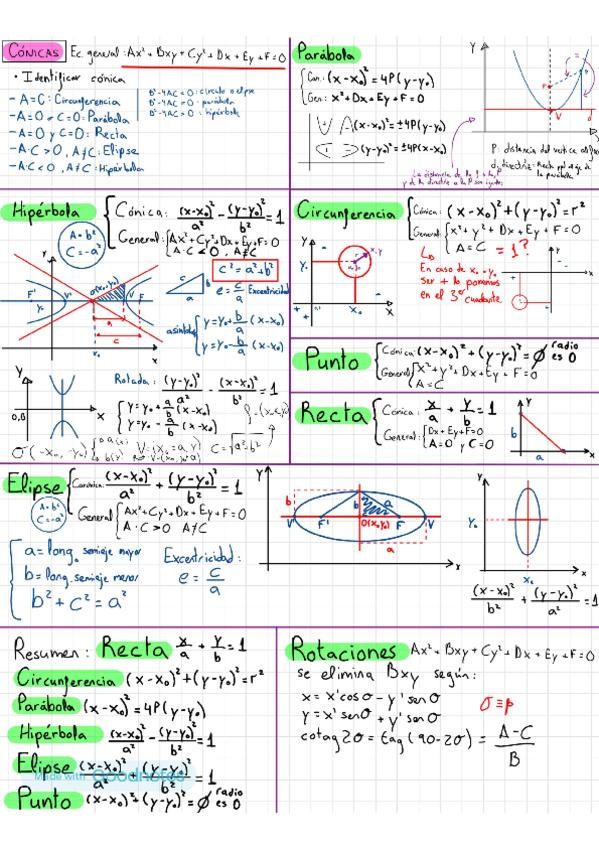 CÓNICAS Ec. general: Ax² + Bxy + Cy² + Dx + Ey + F = 0
• Identificar cónica
- A = C: Circunferencia
- A = 0 o C = 0: Parábola
- A = 0 y C = 0: Recta
- A·C > 0, A ≠ C: Elipse
- A·C < 0, A ≠ C: Hipérbola
B²-4AC
B²-4AC = 0: parábola
hipérbola
Parábola
Can: (x-x₀)² = 4P(y-y₀)
Gen: x² + Dx + Ey + F = 0
(x-x₀)² = ±4P(y-y₀)
(y-y₀)² = ±4P(x-x₀)
Y
P
V
d
x
P: distancia del vertice al
d: directriz: Recta
la parábola
Hipérbola
Cónica: (x-x₀)²/a² - (y-y₀)²/b² = 1
General: Ax² + Cy² + Dx + Ey + F = 0
A·C < 0, A ≠ C
A = b²
C = -a²
c² = a² + b²
e = c/a Excentricidad
y = y₀ + b/a (x-x₀)
y = y₀ - b/a (x-x₀)
F' V' V F
a
c
x₀
Rotada: (y-y₀)²/a² - (x-x₀)²/b² = 1
y = y₀ + a/b (x-x₀)
y = y₀ - a/b (x-x₀)
0,0
Y
x
Circunferencia
Cónica: (x-x₀)² + (y-y₀)² = r²
General: x² + y² + Dx + Ey + F = 0
A = C = 1?
En caso de x₀ y₀
ser + lo ponemos
en el 3er cuadrante
Y
Y₀
X₀
x
Punto
Cónica: (x-x₀)² + (y-y₀)² = Ø radio es 0
General: x² + y² + Dx + Ey + F = 0
A = C
Recta
Cónica: x/a + y/b = 1
General: Dx + Ey + F = 0
A = 0 y C = 0
b
a
x
Elipse
Canónica: (x-x₀)²/a² + (y-y₀)²/b² = 1
General: Ax² + Cy² + Dx + Ey + F = 0
A·C > 0 A ≠ C
A = b²
a = long. semieje mayor
b = long. semieje menor
b² + c² = a²
Excentricidad:
e = c/a
Y
b
V F' O(x₀,y₀) F V
a
x
Y
Y₀
X₀
x
(x-x₀)²/b² + (y-y₀)²/a² = 1
Resumen: Recta x/a + y/b = 1
Circunferencia (x-x₀)² + (y-y₀)² = r²
Parábola (x-x₀)² = 4P(y-y₀)
Hipérbola (x-x₀)²/a² - (y-y₀)²/b² = 1
Elipse (x-x₀)²/a² + (y-y₀)²/b² = 1
Made with Goodnotes
Punto (x-x₀)² + (y-y₀)² = Ø radio es 0
Rotaciones Ax² + Bxy + Cy² + Dx + Ey + F = 0
se elimina Bxy según:
x = x'cosσ - y'senσ
y = x'senσ + y'senσ
σ ≡ φ
cotag2σ = tag(90-2σ) = A-C/B